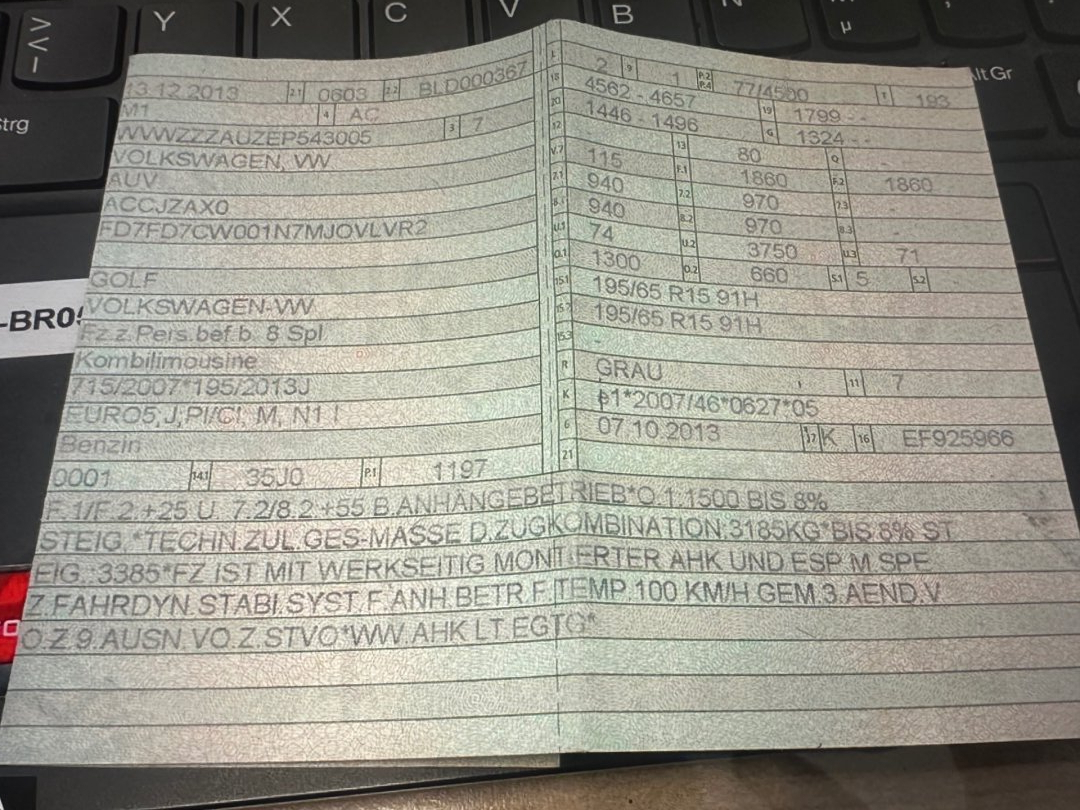 Y X C V B N µ
Strg
Alt Gr
-BR05
13.12.2013 2.1 0603 2.2 BLD000367
M1 4 AC
WVWZZZAUZEP543005 3 7
VOLKSWAGEN, VW
AUV
ACCJZAX0
FD7FD7CW001N7MJOVLVR2
GOLF
VOLKSWAGEN-VW
Fz.z.Pers.bef.b. 8 Spl
Kombilimousine
715/2007*195/2013J
EURO5,J,PI/CI, M, N1 I
Benzin
0001 14.1 35J0 P.1 1197
L 2 9 1 P.2 P.4 77/4500 T 193
18 4562 - 4657 19 1799 - -
20 1446 - 1496 G 1324 - -
12 13 80 Q
V.7 115 F.1 1860 F.2 1860
7.1 940 7.2 970 7.3
8.1 940 8.2 970 8.3
U.1 74 U.2 3750 U.3 71
O.1 1300 O.2 660 S.1 5 S.2
15.1 195/65 R15 91H
15.2 195/65 R15 91H
15.3 -
R GRAU 11 7
K e1*2007/46*0627*05
6 07.10.2013 17 K 16 EF925966
21
F.1/F.2.+25 U. 7.2/8.2 +55 B.ANHÄNGEBETRIEB*O.1 1500 BIS 8%
STEIG.*TECHN.ZUL.GES-MASSE D.ZUGKOMBINATION.3185KG*BIS 8% ST
EIG.:3385*FZ IST MIT WERKSEITIG MONTIERTER AHK UND ESP M.SPE
Z.FAHRDYN.STABI.SYST.F.ANH.BETR.F.TEMP.100 KM/H GEM.3.AEND.V
O.Z.9.AUSN.VO.Z.STVO*WW.AHK LT.EGTG*